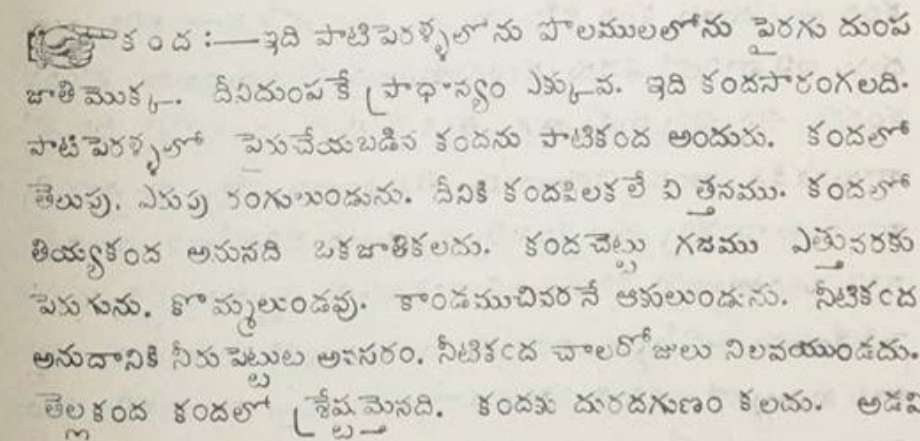 కంద :—ఇది పాటిపెరళ్ళలోను పొలములలోను పైరగు దుంప
జాతి మొక్క. దీనిదుంపకే ప్రాధాన్యం ఎక్కువ. ఇది కందసారంగలది.
పాటిపెరళ్ళలో పైరుచేయబడిన కందను పాటికంద అందురు. కందలో
తెలుపు. ఎరుపు రంగులుండును. దీనికి కందపిలకలే విత్తనము. కందలో
తియ్యకంద అనునది ఒకజాతికలదు. కందచెట్టు గజము ఎత్తువరకు
పెరుగును. కొమ్మలుండవు. కాండముచివరనే ఆకులుండును. నీటికఁద
అనుదానికి నీరు పెట్టుట అవసరం. నీటికఁద చాలరోజులు నిలవయుండదు.
తెల్లకంద కందలో శ్రేష్టమైనది. కందకు దురదగుణం కలదు. అడవి